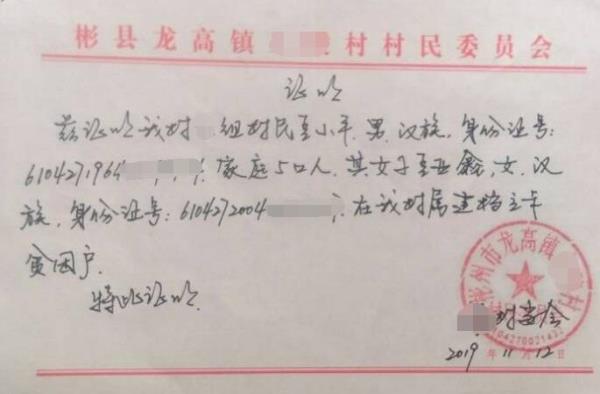 彬县龙高镇 村村民委员会
证明
兹证明我村 组村民王小平,男,汉族,身份证号:
6104271964 家庭5口人,其女子王亚鑫,女,汉
族,身份证号:6104272004 在我村属建档立卡
贫困户.
特此证明.
彬州市龙高镇 村
村委会
2019年11月12日